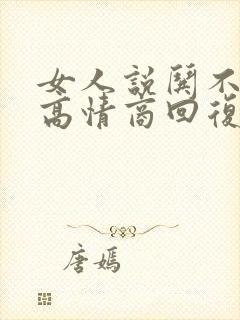 女人説闋不
高情商回復
唐嫣